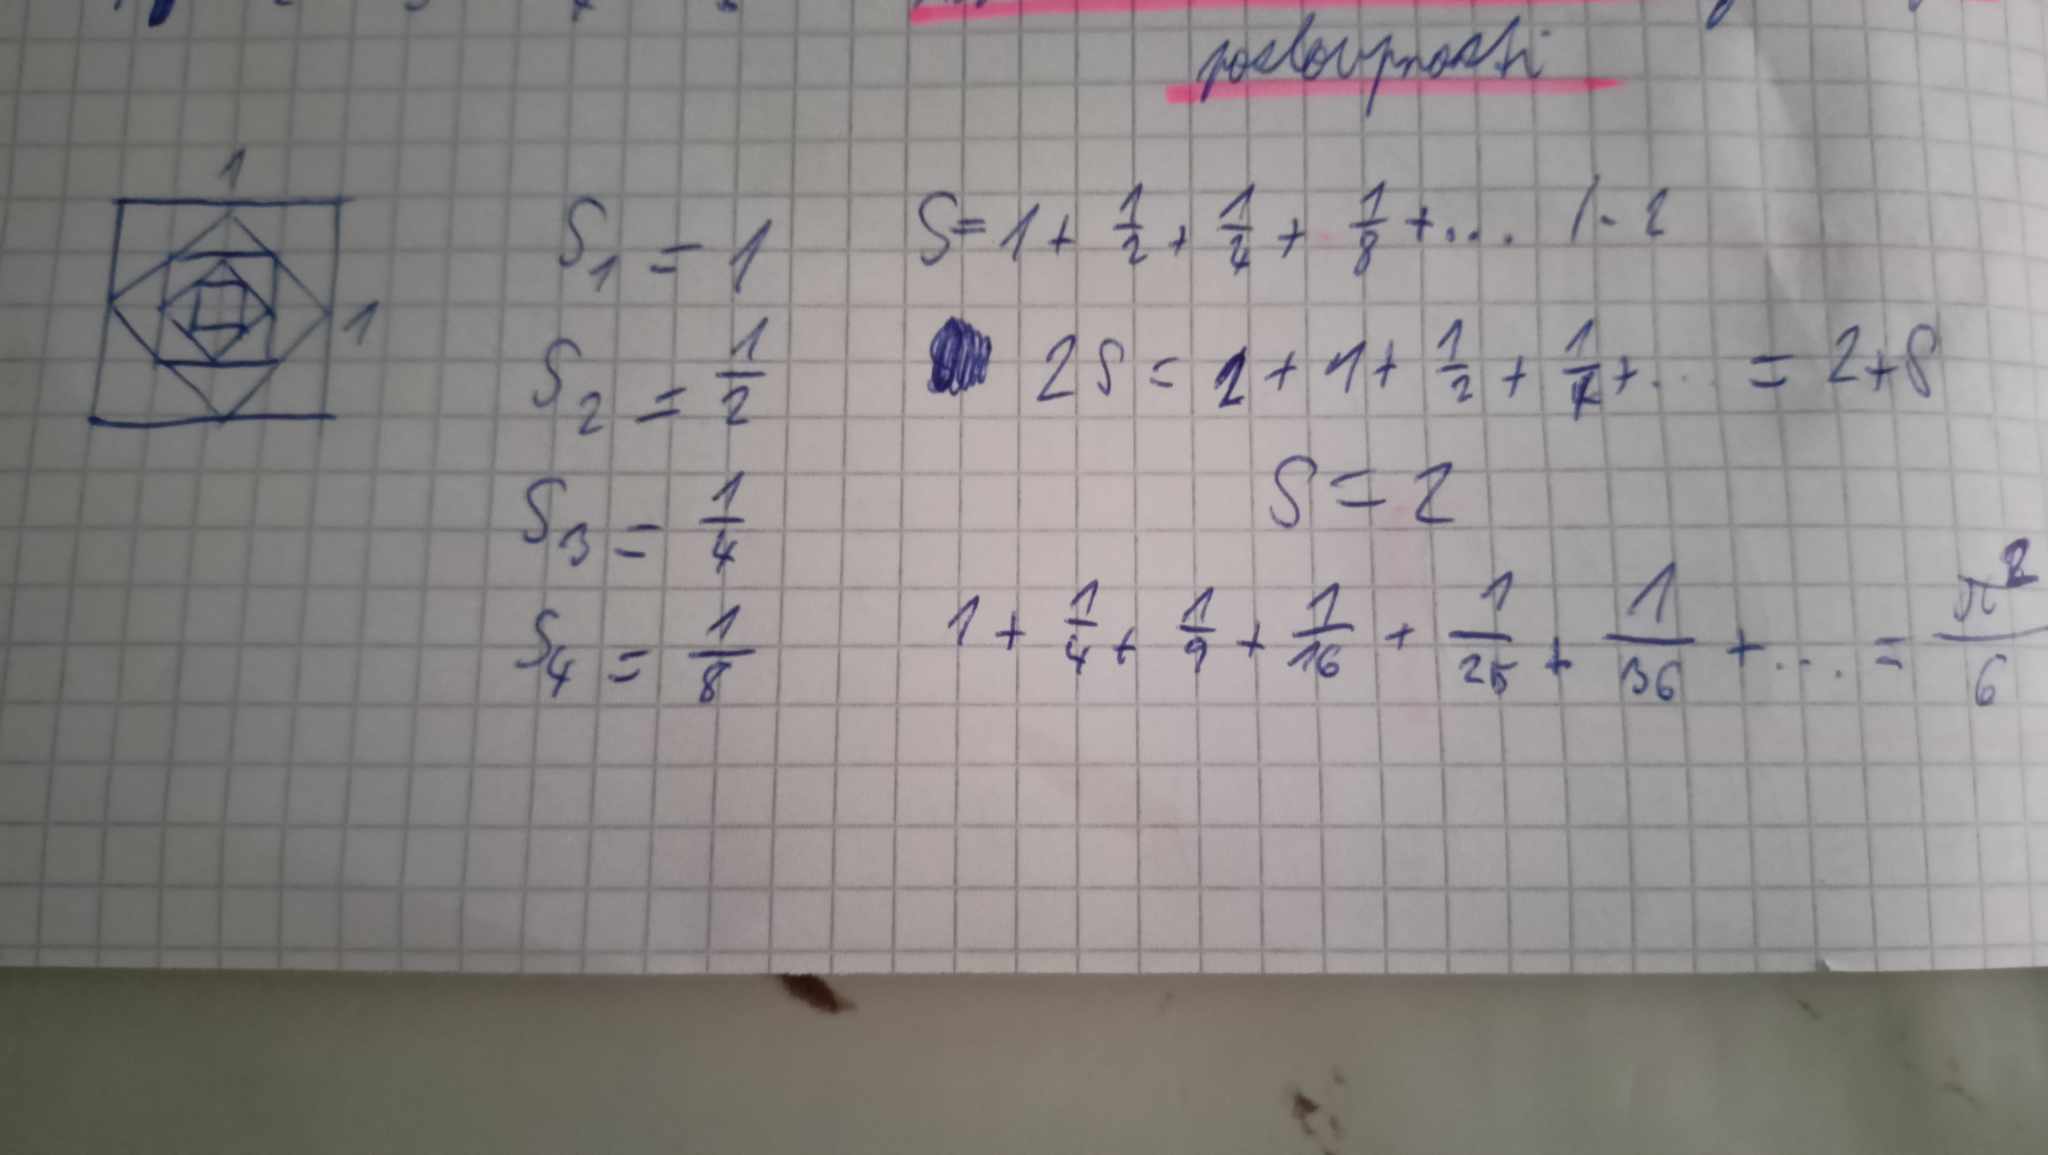 posloupnosti
1
1
S₁ = 1
S₂ = 1/2
S₃ = 1/4
S₄ = 1/8
S = 1 + 1/2 + 1/4 + 1/8 + ... /· 2
2S = 2 + 1 + 1/2 + 1/4 + ... = 2 + S
S = 2
1 + 1/4 + 1/9 + 1/16 + 1/25 + 1/36 + ... = π²/6